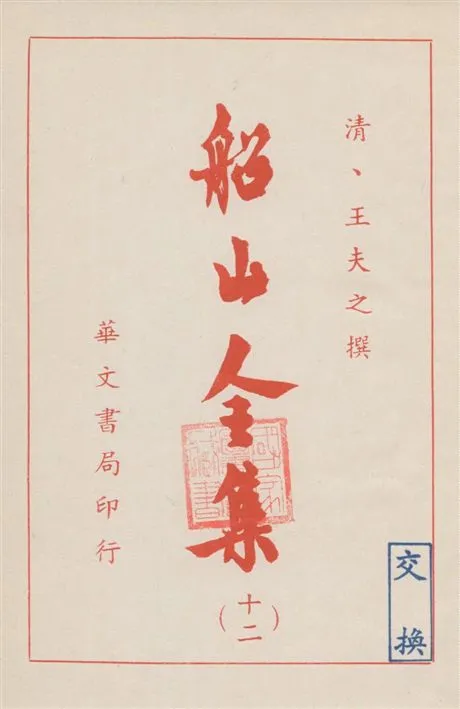 清、王夫之撰
船山全集
(十二)
華文書局印行
交換